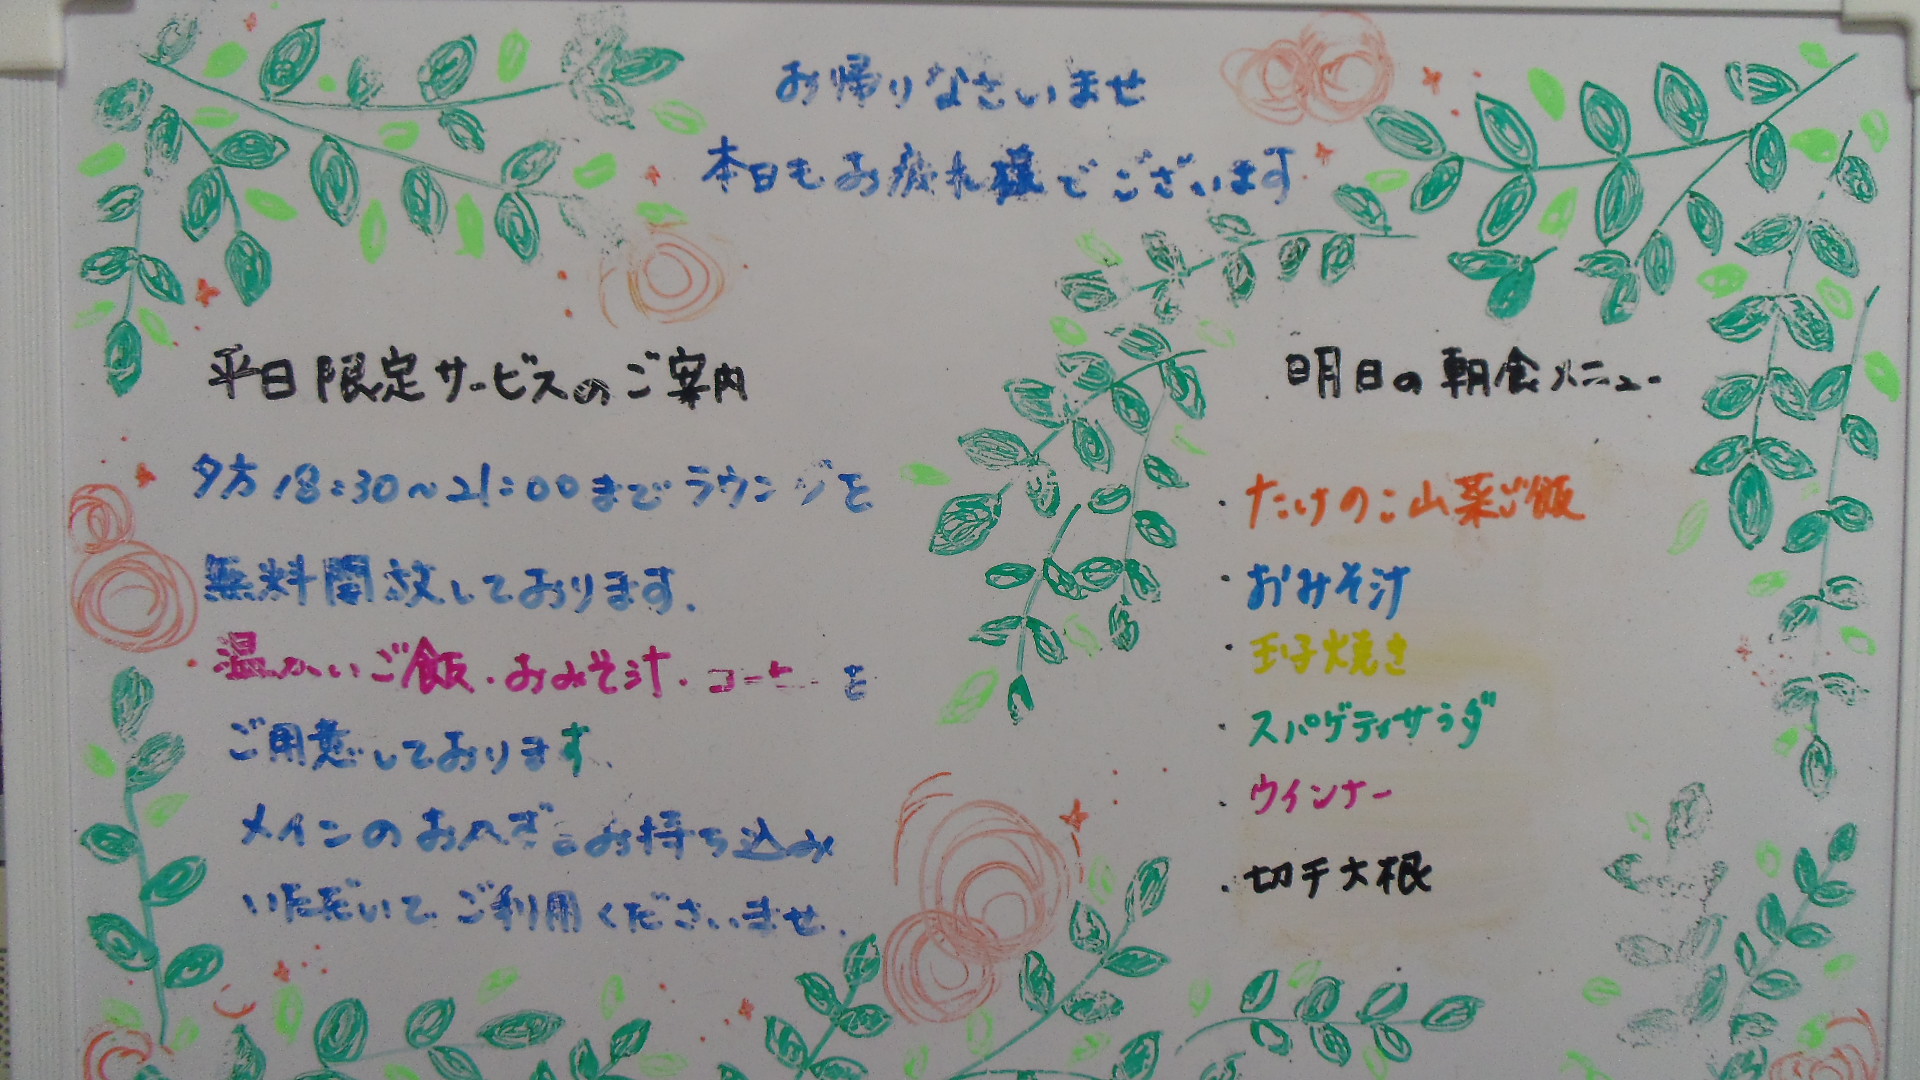 お帰りなさいませ
本日もお疲れ様でございます
平日限定サービスのご案内
夕方18:30～21:00までラウンジを
無料開放しております.
・温かいご飯・おみそ汁・コーヒーを
ご用意しております.
メインのおかずをお持ち込み
いただいてご利用くださいませ.
明日の朝食メニュー
・たけのこ山菜ご飯
・おみそ汁
・玉子焼き
・スパゲティサラダ
・ウインナー
・切干大根